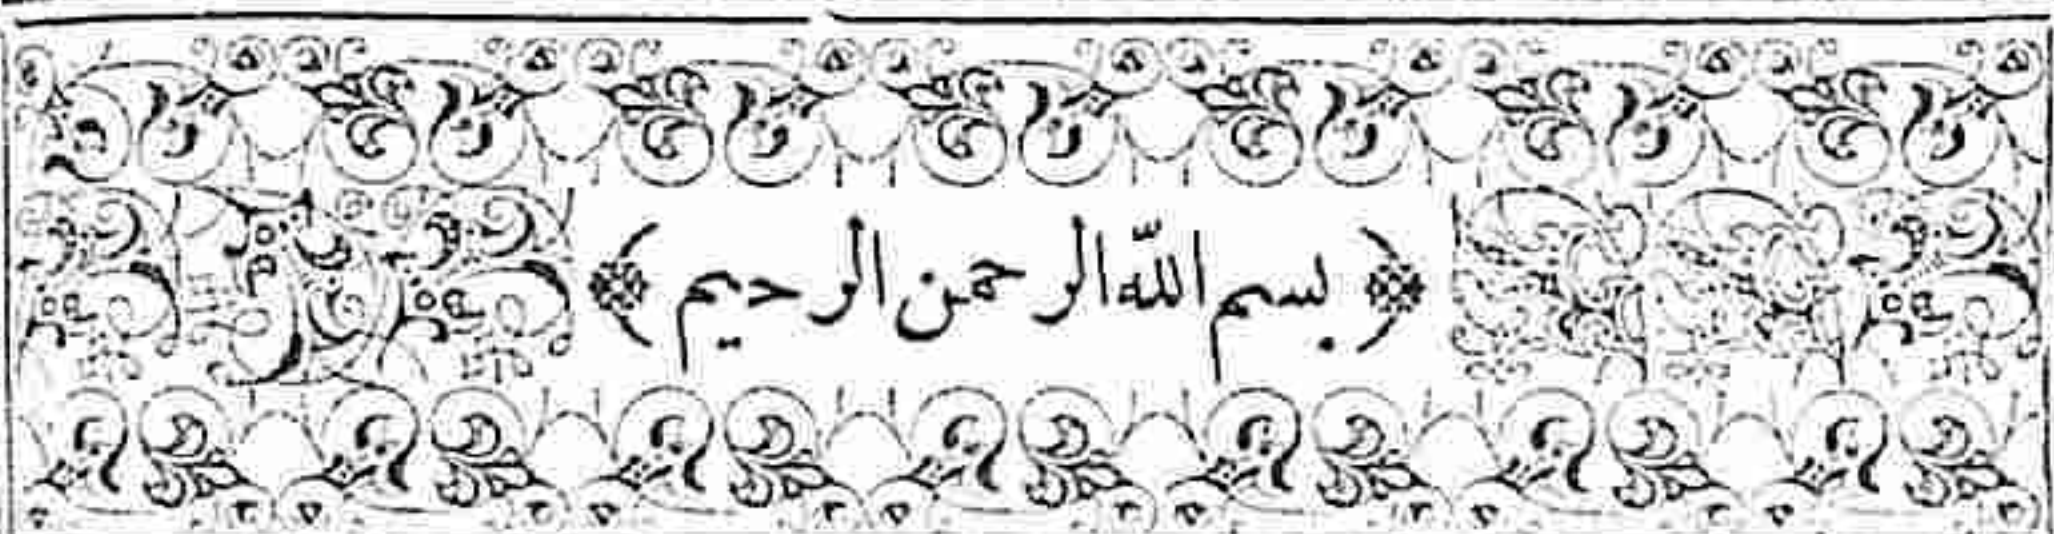 ﴿ بسم اللّه الرحمن الرحيم ﴾